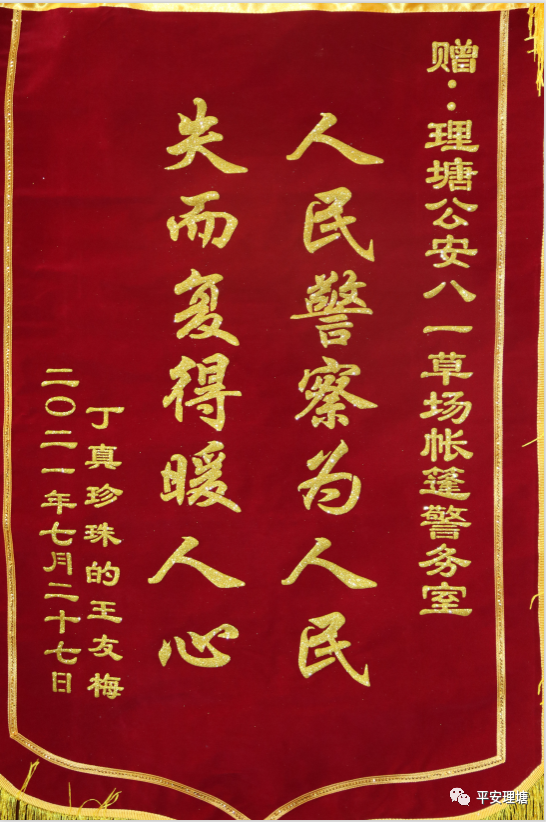 赠：理塘公安八一草场帐篷警务室
人民警察为人民
失而复得暖人心
丁真珍珠的王友梅
二〇二一年七月二十七日
平安理塘